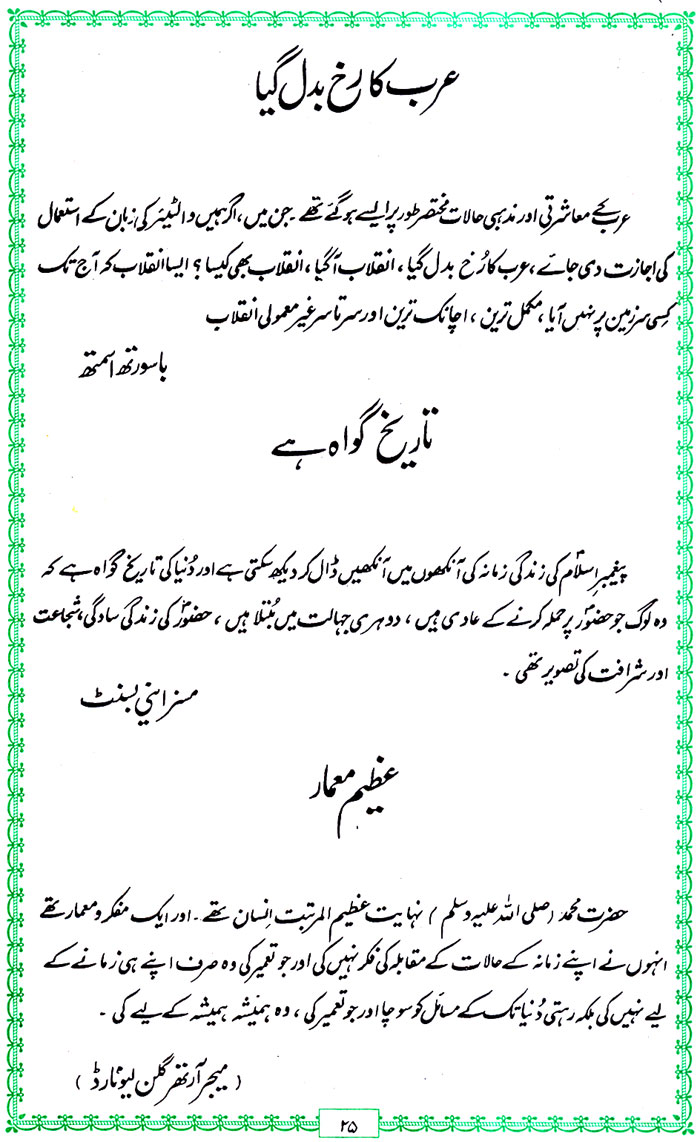 عرب کا رخ بدل گیا
عرب کے معاشرتی اور مذہبی حالات مختصر طور پر ایسے ہو گئے تھے جن میں، اگر ہمیں والٹیئر کی زبان کے استعمال
کی اجازت دی جائے، عرب کا رُخ بدل گیا، انقلاب آگیا، انقلاب بھی کیسا؟ ایسا انقلاب کہ آج تک
کِسی سرزمین پر نہیں آیا، مکمل ترین، اچانک ترین اور سرتاسر غیر معمولی انقلاب
باسورتھ اسمتھ
تاریخ گواہ ہے
پیغمبرِ اسلامؐ کی زندگی زمانہ کی آنکھوں میں آنکھیں ڈال کر دیکھ سکتی ہے اور دُنیا کی تاریخ گواہ ہے کہ
وہ لوگ جو حضورؐ پر حملہ کرنے کے عادی ہیں، دوہری جہالت میں مُبتلا ہیں، حضورؐ کی زندگی سادگی، شجاعت
اور شرافت کی تصویر تھی۔
مسز اینی بسنٹ
عظیم معمار
حضرت محمد (صلی اللہ علیہ وسلم) نہایت عظیم المرتبت اِنسان تھے۔ اور ایک مفکر و معمار تھے
انہوں نے اپنے زمانہ کے حالات کے مقابلہ کی فکر نہیں کی اور جو تعمیر کی وہ صرف اپنے ہی زمانے کے
لیے نہیں کی بلکہ رہتی دُنیا تک کے مسائل کو سوچا اور جو تعمیر کی، وہ ہمیشہ ہمیشہ کے لیے کی۔
(میجر آرتھر گلن لیونارڈ)
۲۵